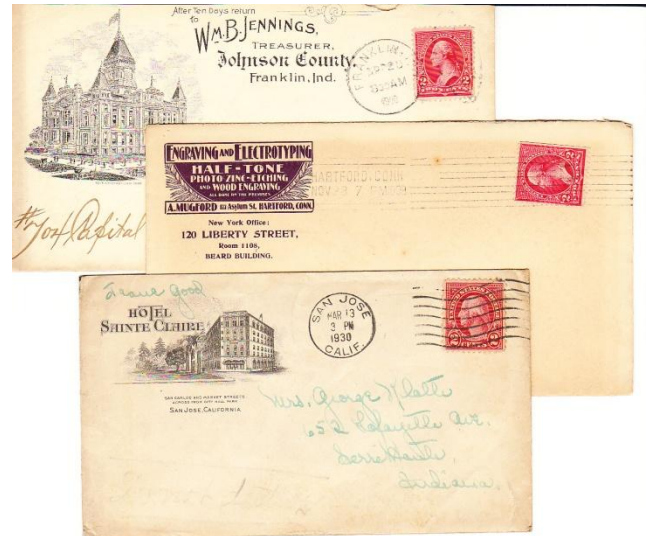 After Ten Days return
to
WM. B. JENNINGS,
TREASURER,
Johnson County,
Franklin, Ind.
FRANKLIN,
AM
2 2
ENGRAVING AND ELECTROTYPING
HALF-TONE
PHOTO ZINC-ETCHING
AND WOOD ENGRAVING
ALL DONE ON THE PREMISES
A. MUGFORD 177 Asylum St. HARTFORD, CONN.
New York Office:
120 LIBERTY STREET,
Room 1108,
BEARD BUILDING.
HARTFORD, CONN.
NOV 23 7
Frank Good
HOTEL
SAINTE CLAIRE
SAN CARLOS AND MARKET STREETS
ACROSS FROM CITY HALL PARK
SAN JOSE, CALIFORNIA
SAN JOSE
MAR 13
3 PM
1930
CALIF.
2 CENTS 2
Mrs. George Klatte
652 Lafayette Ave.
Terre Haute,
Indiana.